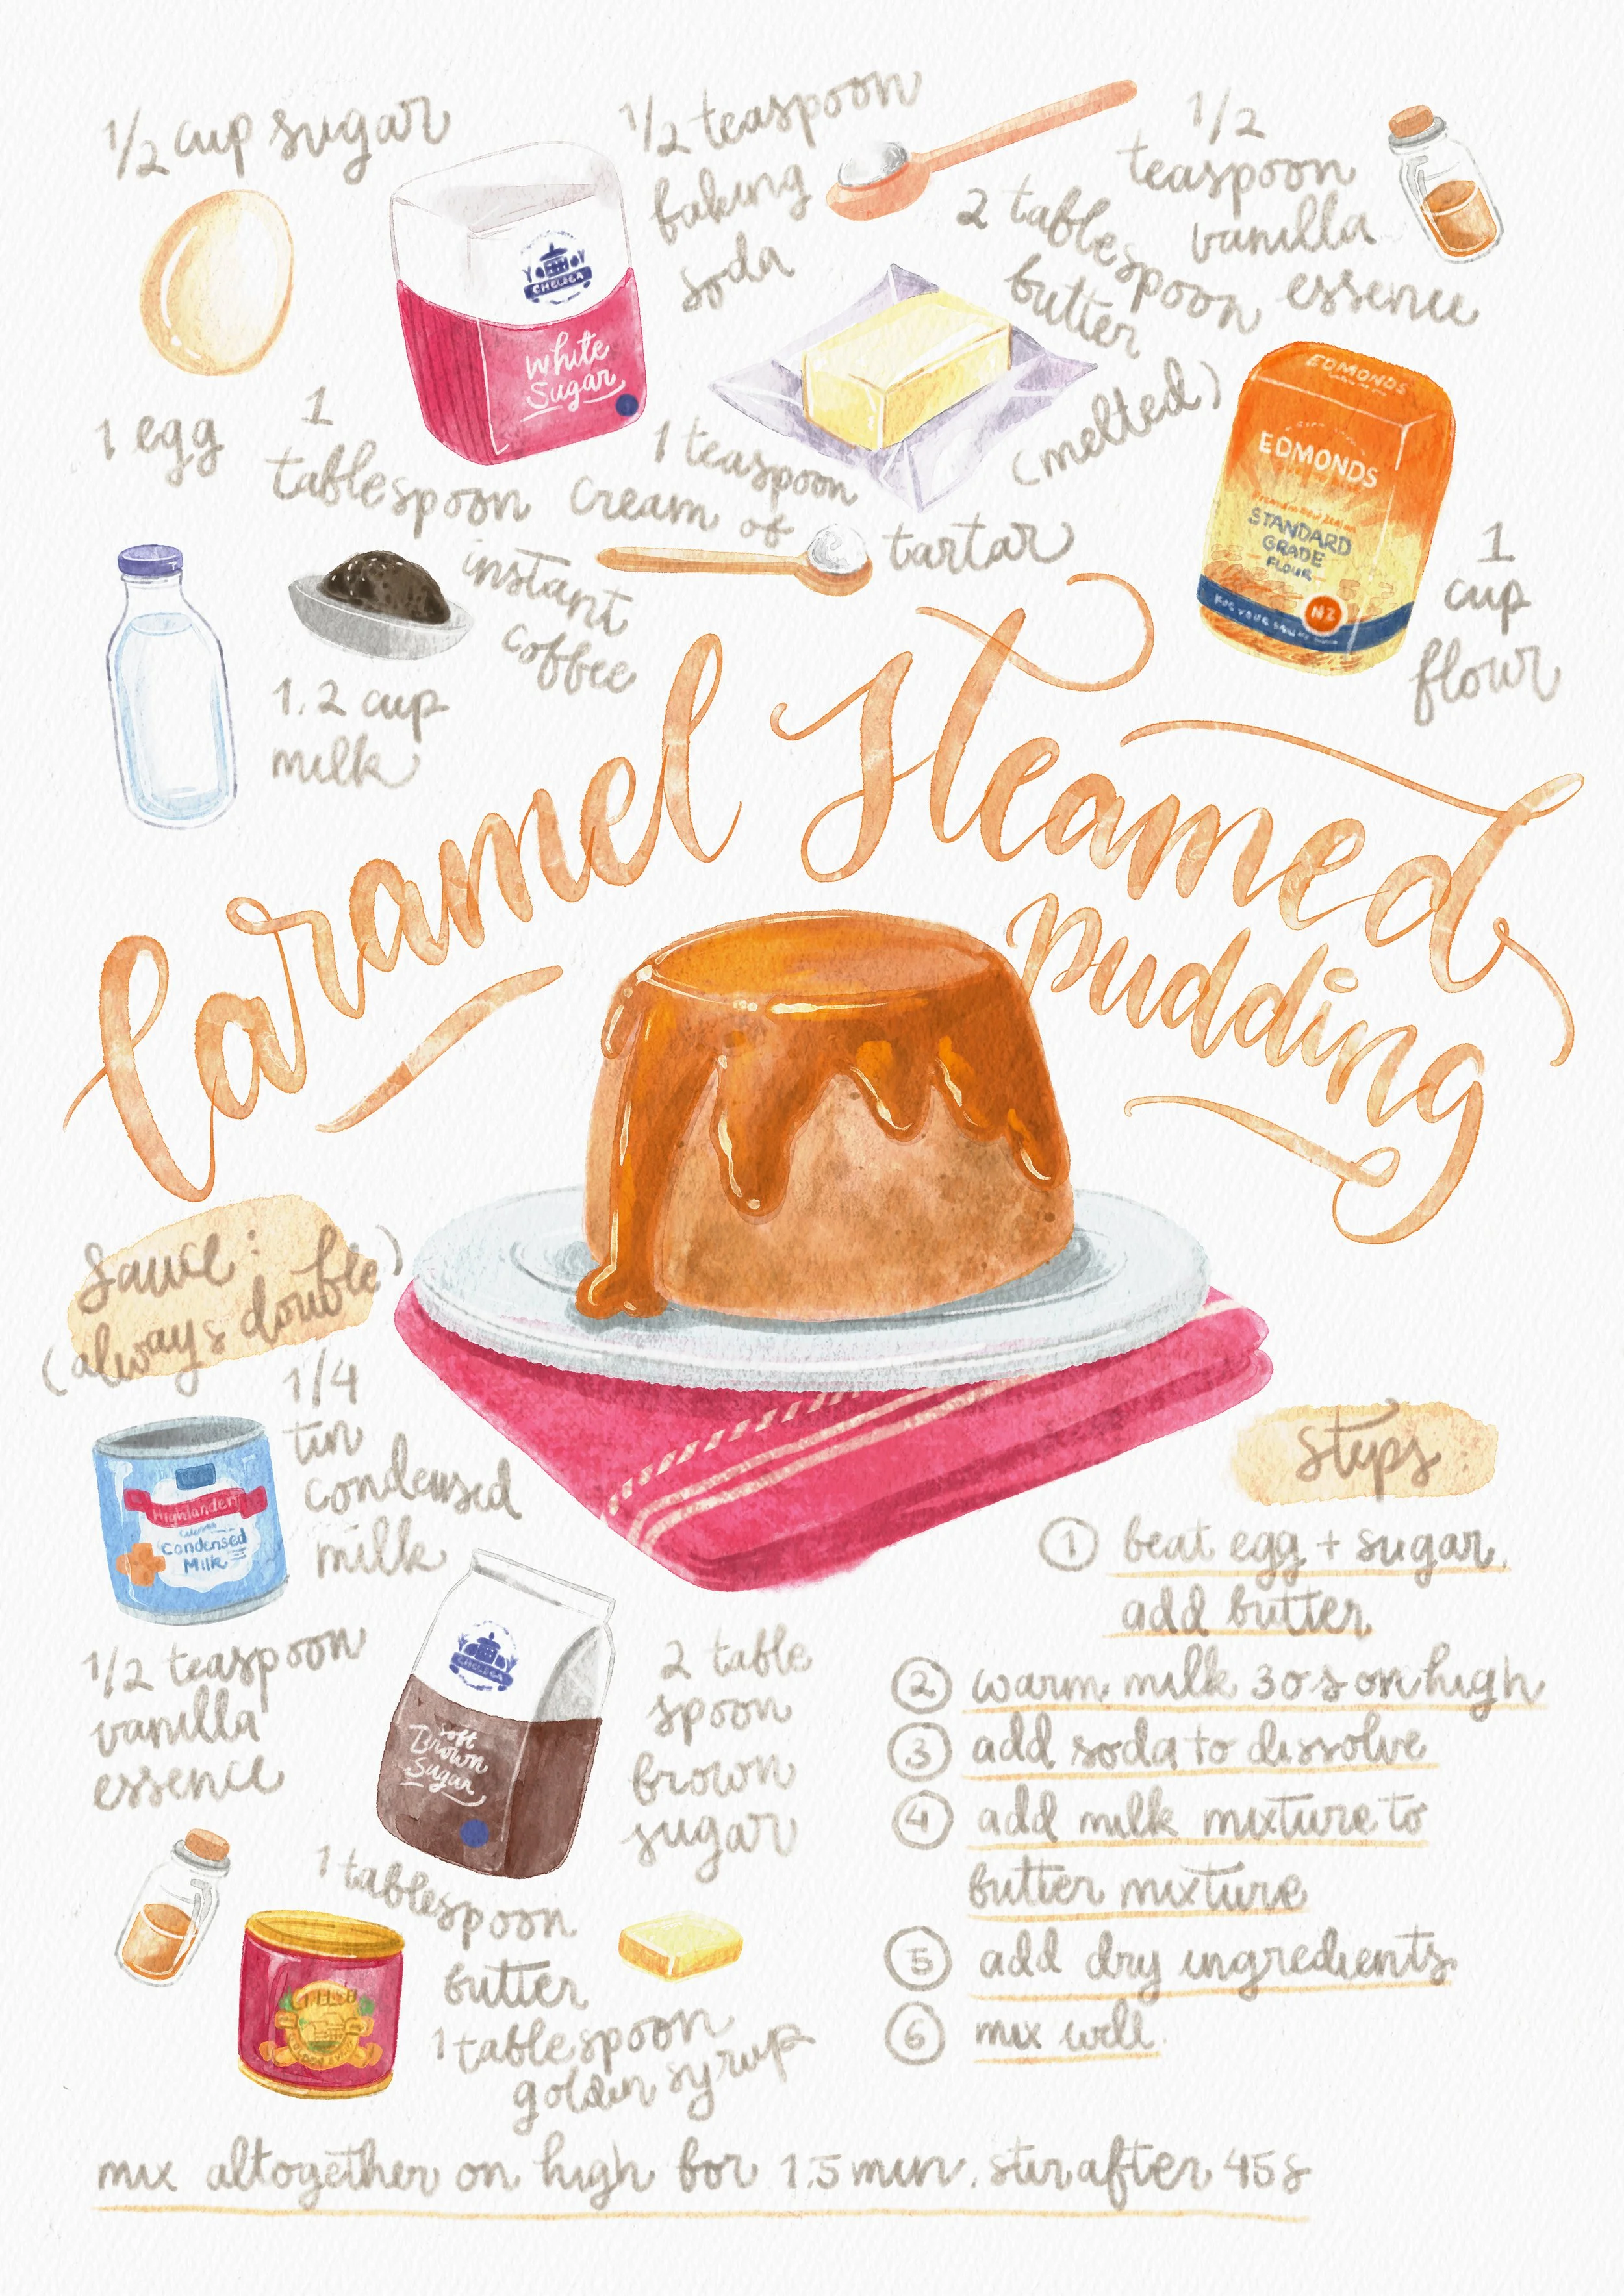 1/2 cup sugar
1/2 teaspoon
baking
soda
1/2
teaspoon
vanilla
essence
2 tablespoon
butter
(melted)
CHELSEA
White
Sugar
1 egg
1
tablespoon
instant
coffee
1 teaspoon
cream of tartar
EDMONDS
EDMONDS
STANDARD
GRADE
FLOUR
NZ
1
cup
flour
1.2 cup
milk
Caramel Steamed
pudding
Sauce:
(always double)
1/4
tin
condensed
milk
Highlander
Condensed
Milk
1/2 teaspoon
vanilla
essence
CHELSEA
Soft
Brown
Sugar
2 table
spoon
brown
sugar
1 tablespoon
butter
1 tablespoon
golden syrup
steps
1 beat egg + sugar.
add butter
2 warm milk 30s on high
3 add soda to dissolve
4 add milk mixture to
butter mixture
5 add dry ingredients
6 mix well.
mix altogether on high for 1.5 min. stir after 45s